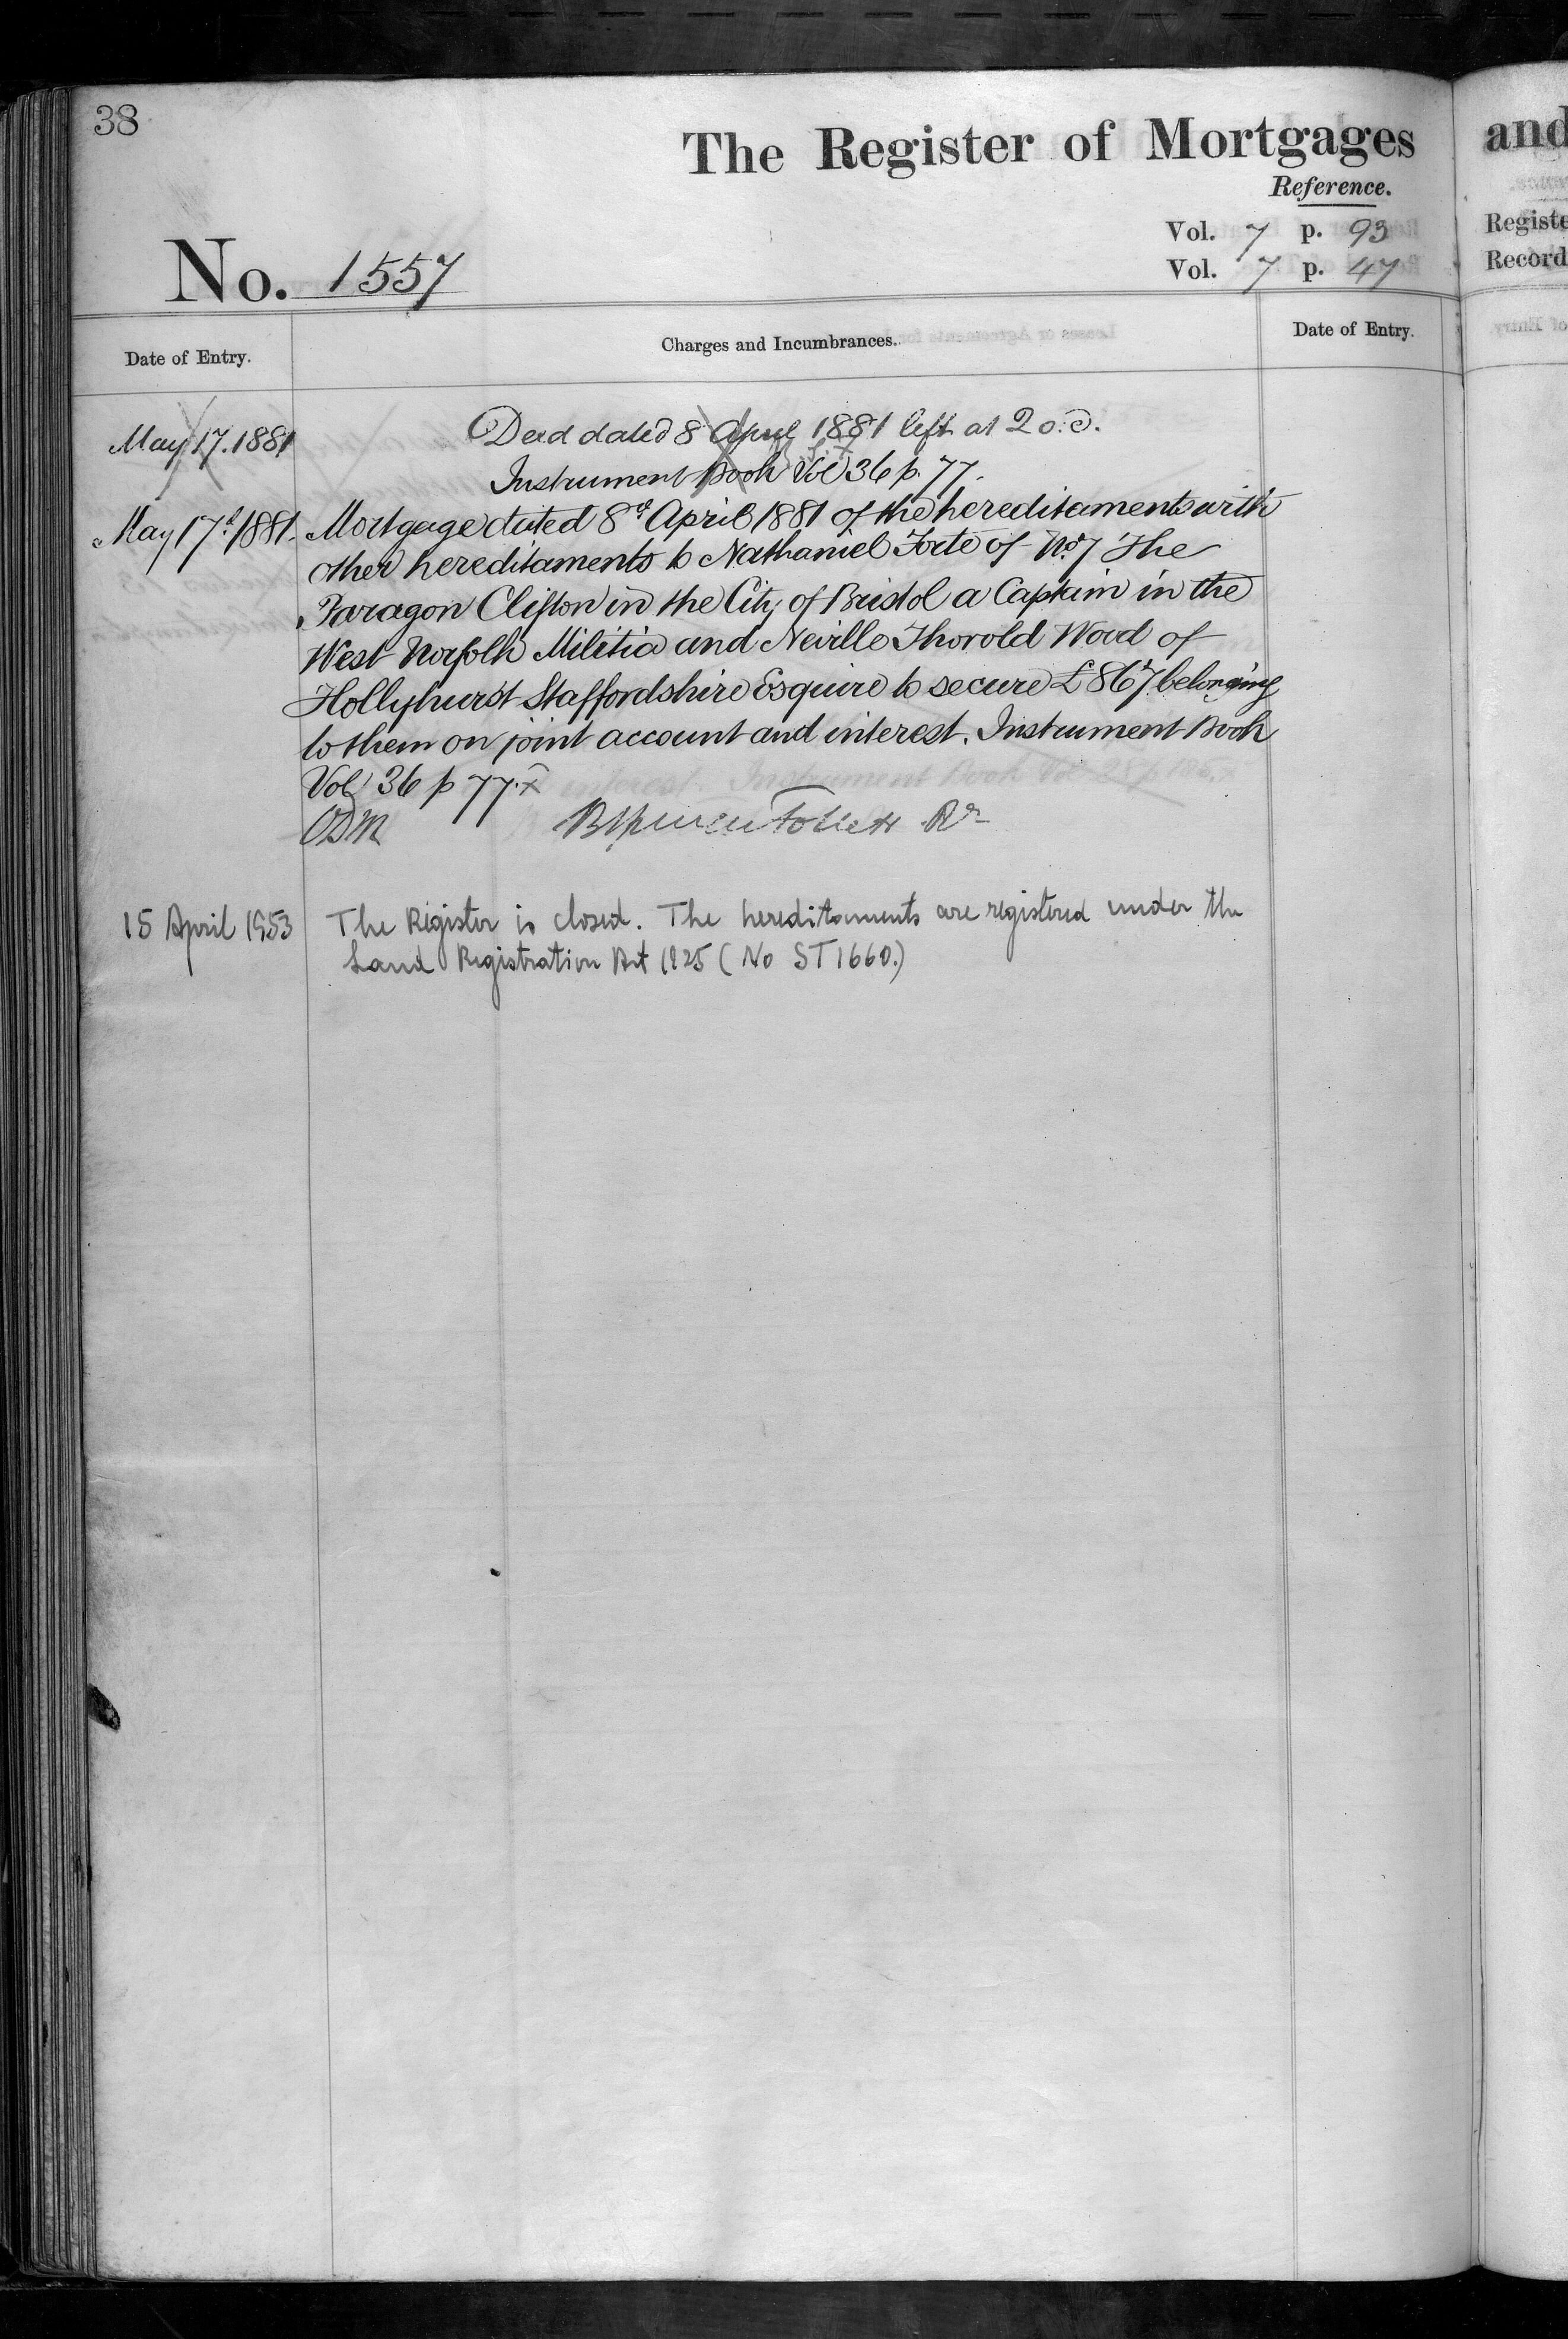 38
The Register of Mortgages
Reference.
Vol. 7 p. 93
Vol. 7 p. 47
No. 1557
Date of Entry.
Charges and Incumbrances.
Date of Entry.
May 17. 1881
Deed dated 8 April 1881 left at 2 o.c.
Instrument Book Vol 36 p. 77.
May 17th 1881.
Mortgage dated 8th April 1881 of the hereditaments with
other hereditaments to Nathaniel Forte of No. 7 The
Paragon Clifton in the City of Bristol a Captain in the
West Norfolk Militia and Neville Thorold Wood of
Hollyhurst Staffordshire Esquire to secure £867 belonging
to them on joint account and interest. Instrument Book
Vol 36 p 77. x
Follett Rr
15 April 1953
The Register is closed. The hereditaments are registered under the
Land Registration Act 1925 (No ST1660.)
and
Registe
Record